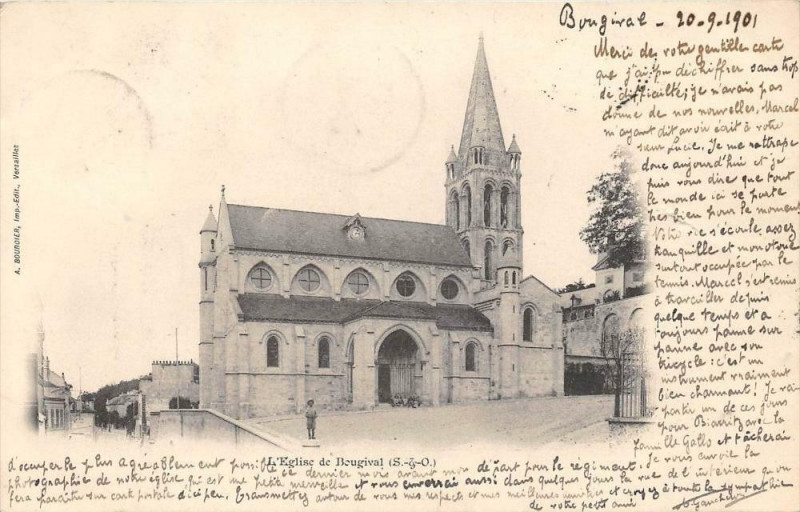 Bougival - 20-9-1901
Merci de votre gentille carte
que j'ai pu déchiffrer sans trop
de difficulté; je n'avais pas
donné de nos nouvelles, Marcel
m'ayant dit avoir écrit à votre
sœur Lucie. Je me rattrape
donc aujourd'hui et je
puis vous dire que tout
le monde ici se porte
très bien pour le moment
Votre vie s'écoule assez
tranquille et monotone
surtout occupée par le
tennis. Marcel s'est remis
à travailler depuis
quelque temps et a
toujours panne sur
panne avec son
bicycle: c'est un
instrument vraiment
bien charmant! Je vais
partir un de ces jours
pour Biarritz avec la
famille Gallo et tâcherai
d'occuper le plus agréablement possible ce dernier mois avant mon départ pour le régiment. Je vous envoie la
photographie de notre église, qui est une petite merveille et vous enverrai aussi dans quelques jours la vue de l'intérieur qu'on
fera paraître sur carte postale d'ici peu. Transmettez autour de vous mes respects et mes meilleures et croyez à toute la sympathie
de votre petit ami
L'Eglise de Bougival (S.-&-O.)
A. BOURDIER, Imp.-Edit., Versailles